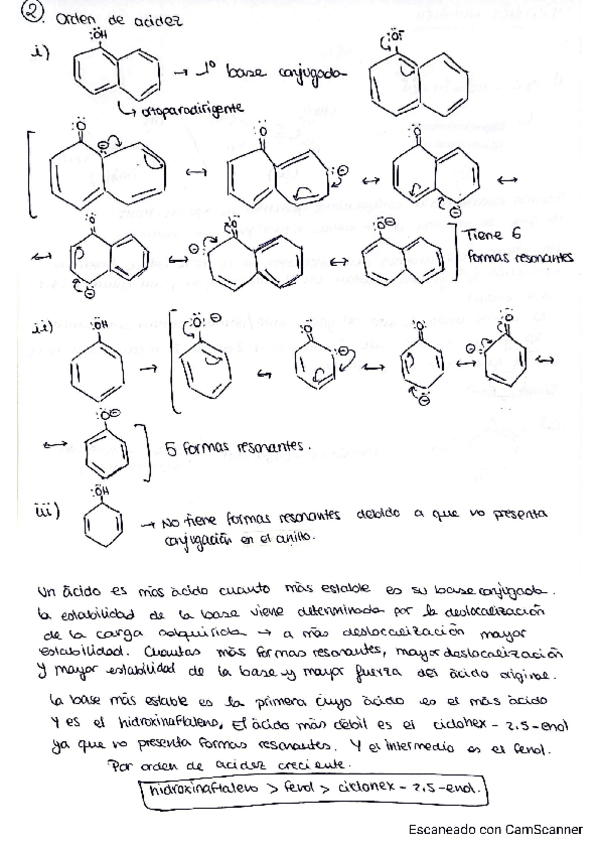 2. Orden de acidez
i) :ÖH → 1º base conjugada
↳ ortoparadirigente
Tiene 6
formas resonantes
ii) :ÖH
5 formas resonantes.
:ÖH
iii) → No tiene formas resonantes debido a que no presenta
conjugación en el anillo.
Un ácido es más ácido cuanto más estable es su base conjugada.
la estabilidad de la base viene determinada por la deslocalización
de la carga adquirida → a más deslocalización mayor
estabilidad. Cuantas más formas resonantes, mayor deslocalización
y mayor estabilidad de la base y mayor fuerza del ácido original.
la base más estable es la primera cuyo ácido es el más ácido
y es el hidroxinaftaleno, El ácido más débil es el ciclohex-2,5-enol
ya que no presenta formas resonantes. Y el intermedio es el fenol.
Por orden de acidez creciente.
hidroxinaftaleno > fenol > ciclohex-2,5-enol.
Escaneado con CamScanner